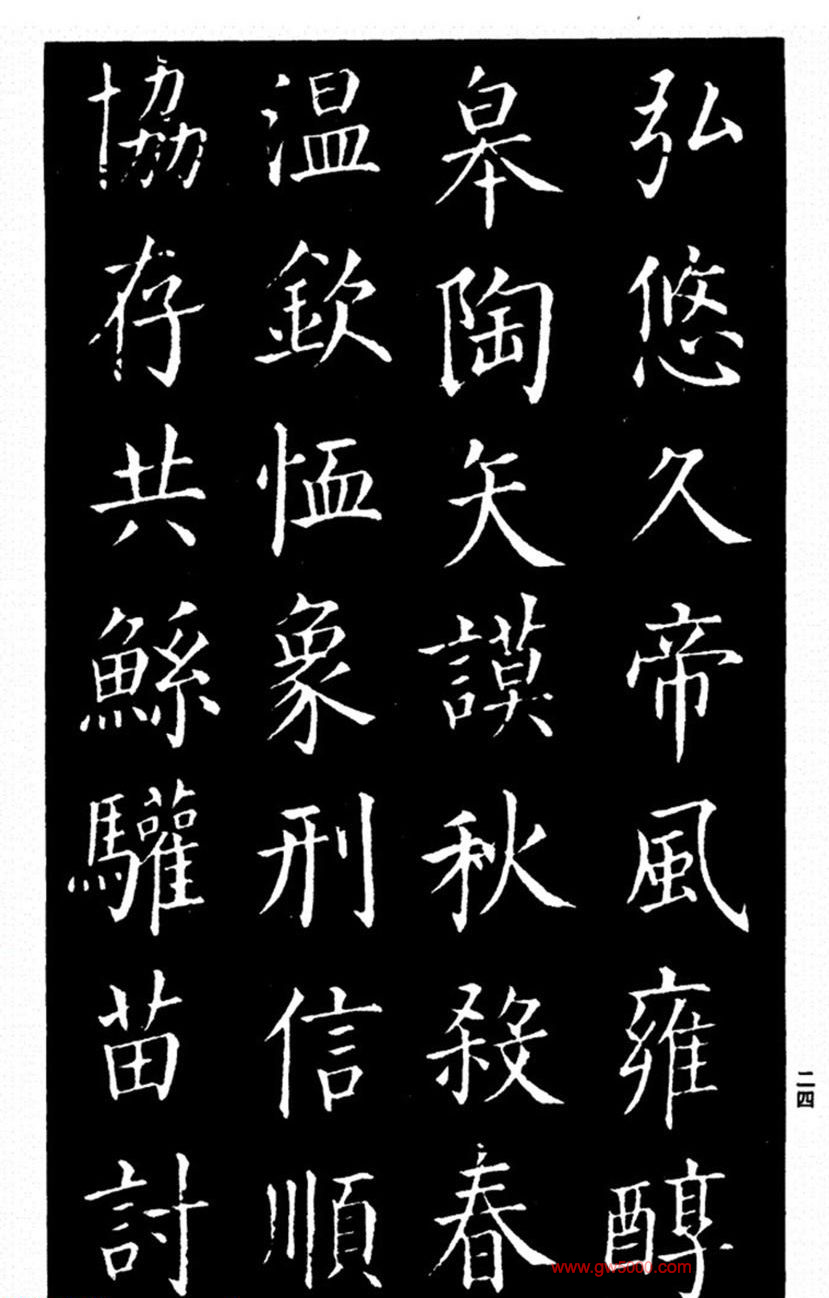 弘悠久帝風雍醇
皋陶矢謨秋殺春
温欽恤象刑信順
協存共鯀驩苗討
二四
www.gw5000.com